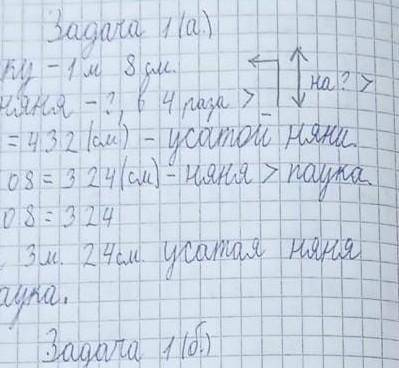 Задача 1(а.)
ку - 1 м 8 дм.
няня - ?, в 4 раза > на ? >
= 432 (см) - усатой няни
08 = 324 (см) - няня > паука.
08 = 324
3 м. 24 см. усатая няня
аука.
Задача 1(б.)